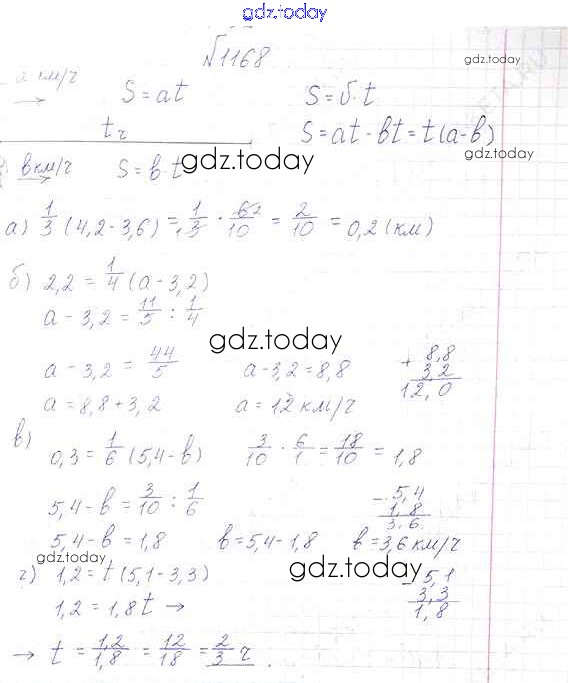 gdz.today
№1168
gdz.today
a км/ч
S = at
S = v·t
t ч
S = at - bt = t(a-b)
в км/ч
S = b·t
gdz.today
а) 1/3 (4,2 - 3,6) = 1/3 · 6/10 = 2/10 = 0,2 (км)
б) 2,2 = 1/4 (a - 3,2)
a - 3,2 = 11/5 : 1/4
gdz.today
a - 3,2 = 44/5
a - 3,2 = 8,8
+ 8,8
3,2
12,0
a = 8,8 + 3,2
a = 12 км/ч
в)
0,3 = 1/6 (5,4 - b)
3/10 · 6/1 = 18/10 = 1,8
5,4 - b = 3/10 : 1/6
- 5,4
1,8
3,6
5,4 - b = 1,8
b = 5,4 - 1,8
b = 3,6 км/ч
gdz.today
gdz.today
г) 1,2 = t (5,1 - 3,3)
- 5,1
3,3
1,8
1,2 = 1,8 t →
→ t = 1,2/1,8 = 12/18 = 2/3 ч.